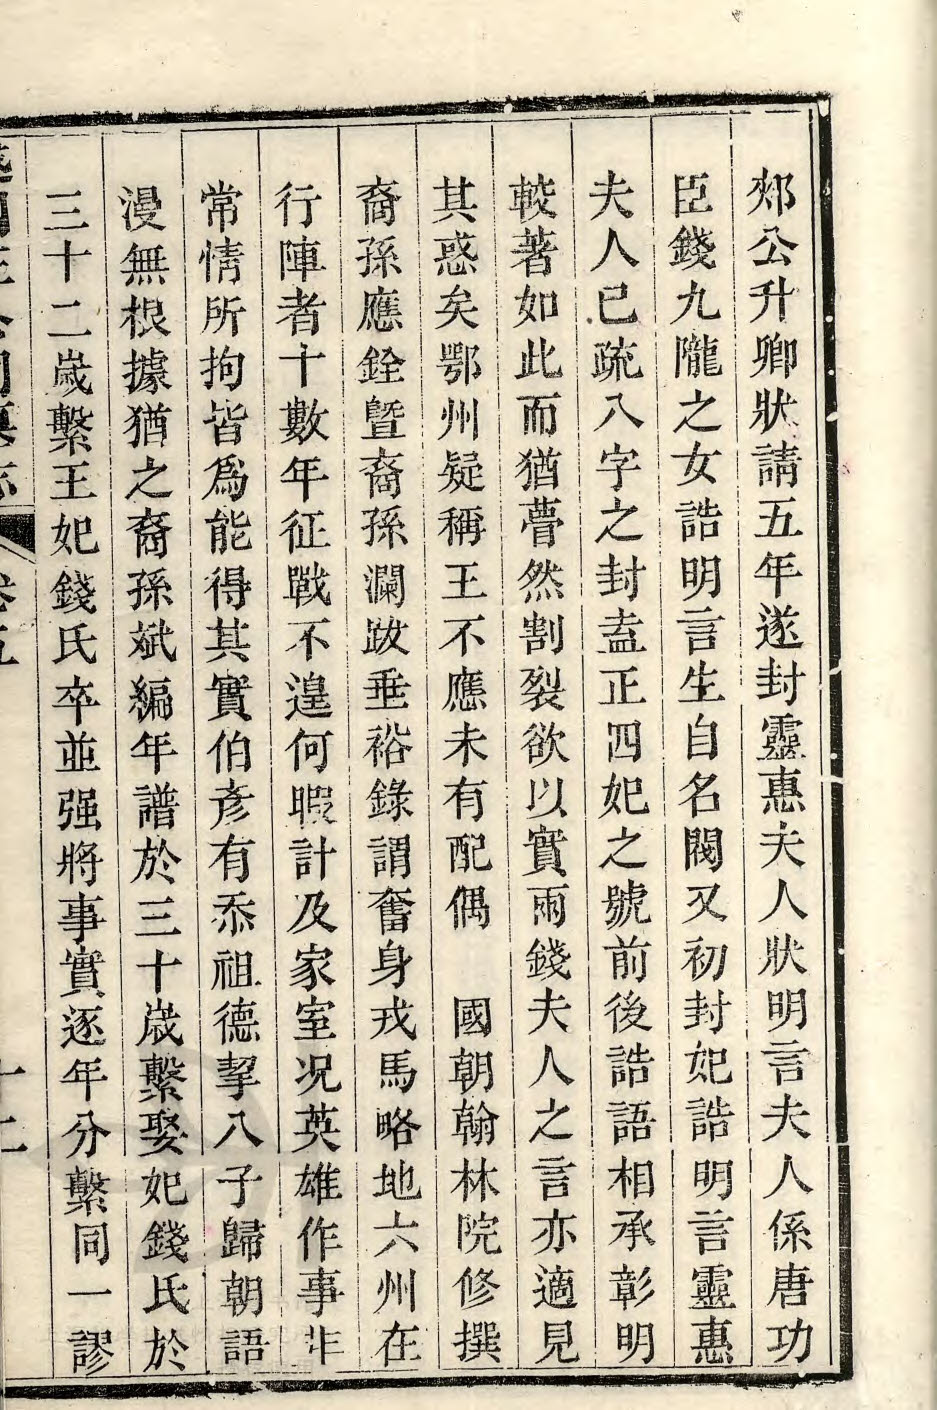 郟公升卿狀請五年遂封靈惠夫人狀明言夫人係唐功
臣錢九隴之女誥明言生自名閥又初封妃誥明言靈惠
夫人已疏八字之封盍正四妃之號前後誥語相承彰明
較著如此而猶瞢然割裂欲以實兩錢夫人之言亦適見
其惑矣鄂州疑稱王不應未有配偶　國朝翰林院修撰
裔孫應銓曁裔孫瀾跋垂裕錄謂奮身戎馬略地六州在
行陣者十數年征戰不遑何暇計及家室况英雄作事非
常情所拘皆爲能得其實伯彥有忝祖德挈八子歸朝語
漫無根據猶之裔孫斌編年譜於三十歲繫娶妃錢氏於
三十二歲繫王妃錢氏卒並强將事實逐年分繫同一謬